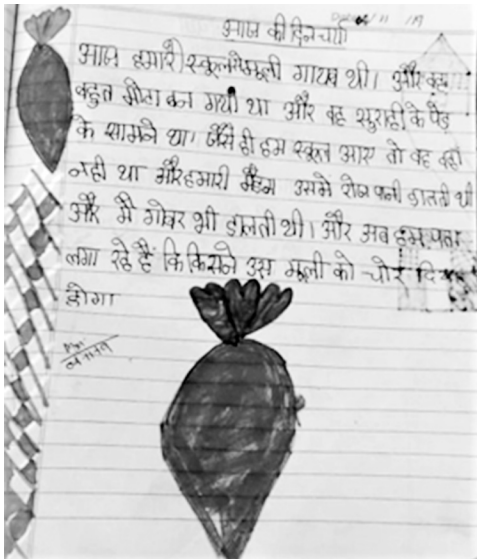 Date 04/11/19
आज की दिनचर्या
आज हमारे स्कूल से मूली गायब थी। और वह
बहुत मोटा बन गयी था और वह सुराही के पेड़
के सामने था। जैसे ही हम स्कूल आए तो वह वहाँ
नही था और हमारी मैडम उसमे रोज पानी डालती थी
और मै गोबर भी डालती थी। और अब हम पता
लगा रहे हैं कि किसने उस मूली को चोर दि
होगा
04.11.19